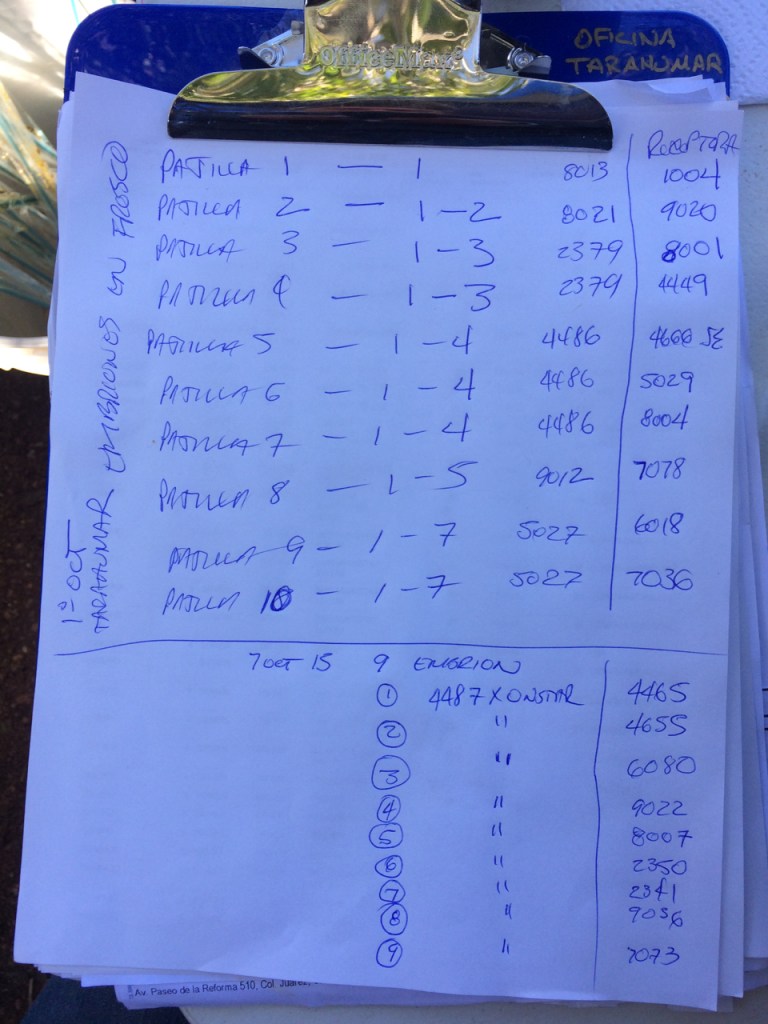 OfficeMax
OFICINA
TARAHUMAR
RECEPTORA
PAJILLA 1 — 1 8013 1004
PAJILLA 2 — 1-2 8021 9020
PAJILLA 3 — 1-3 2379 8001
PAJILLA 4 — 1-3 2379 4449
PAJILLA 5 — 1-4 4486 4666 SE
PAJILLA 6 — 1-4 4486 5029
PAJILLA 7 — 1-4 4486 8004
PAJILLA 8 — 1-5 9012 7078
PAJILLA 9 — 1-7 5027 6018
PAJILLA 10 — 1-7 5027 7036
1º OCT
TARAHUMAR EMBRIONES EN FRESCO
7 OCT 15 9 EMBRION
1 4487 X ONSTAR 4465
2 " 4655
3 " 6080
4 " 9022
5 " 8007
6 " 2350
7 " 2341
8 " 9036
9 " 7073
Av. Paseo de la Reforma 510, Col. Juárez,